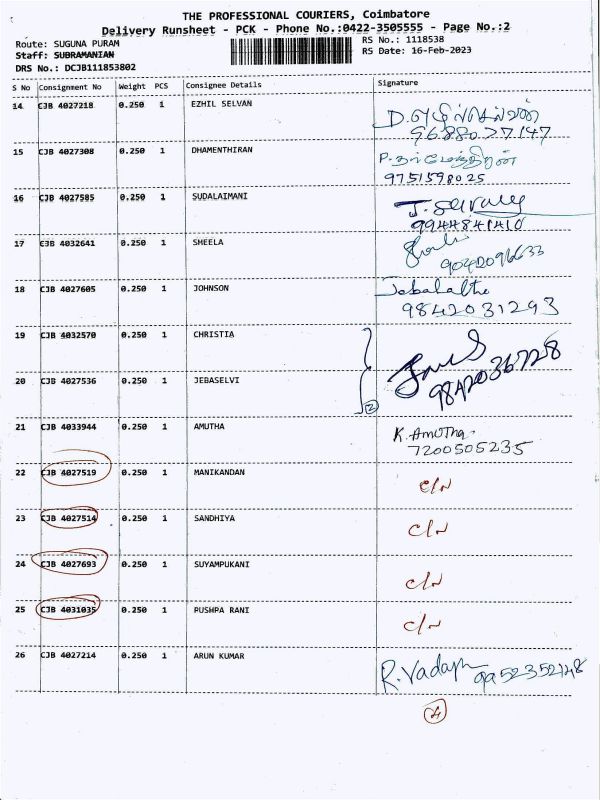 THE PROFESSIONAL COURIERS, Coimbatore
Delivery Runsheet - PCK - Phone No.:0422-3505555 - Page No.:2
Route: SUGUNA PURAM RS No.: 1118538
Staff: SUBRAMANIAN RS Date: 16-Feb-2023
DRS No.: DCJB111853802
S No Consignment No Weight PCS Consignee Details Signature
14 CJB 4027218 0.250 1 EZHIL SELVAN D.எழில்செல்வன்
9688027147
15 CJB 4027308 0.250 1 DHAMENTHIRAN P.தர்மேந்திரன்
9751598025
16 CJB 4027585 0.250 1 SUDALAIMANI
9944841410
17 CJB 4032641 0.250 1 SHEELA
9042096633
18 CJB 4027605 0.250 1 JOHNSON
9842031293
19 CJB 4032570 0.250 1 CHRISTIA
9842036728
20 CJB 4027536 0.250 1 JEBASELVI
2
21 CJB 4033944 0.250 1 AMUTHA K.Amutha
7200505235
22 CJB 4027519 0.250 1 MANIKANDAN C/N
23 CJB 4027514 0.250 1 SANDHIYA C/N
24 CJB 4027693 0.250 1 SUYAMPUKANI C/N
25 CJB 4031035 0.250 1 PUSHPA RANI C/N
26 CJB 4027214 0.250 1 ARUN KUMAR 9952352148
4